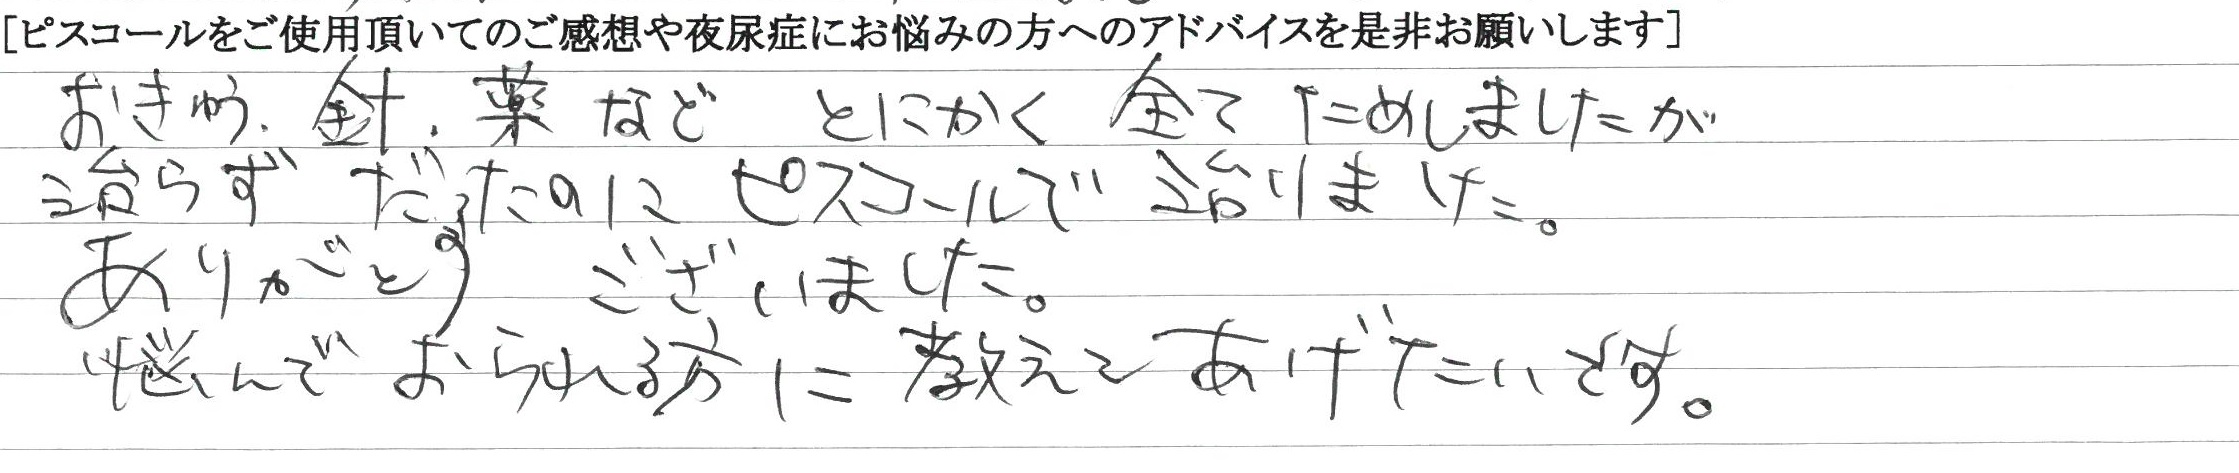 [ピスコールをご使用頂いてのご感想や夜尿症にお悩みの方へのアドバイスを是非お願いします]
おきゅう、針、薬など とにかく 全て ためしましたが
治らず だったのに ピスコールで 治りました。
ありがとう ございました。
悩んで おられる方に 教えて あげたいです。